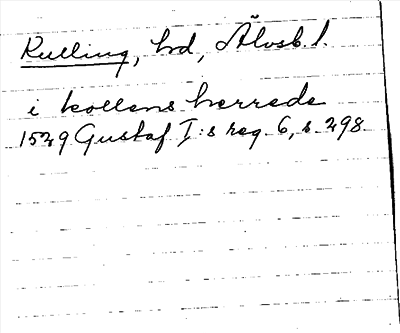 Kulling, hd, Älvsb. l.
i kollens herrede
1529 Gustaf I:s reg. 6, s. 298.